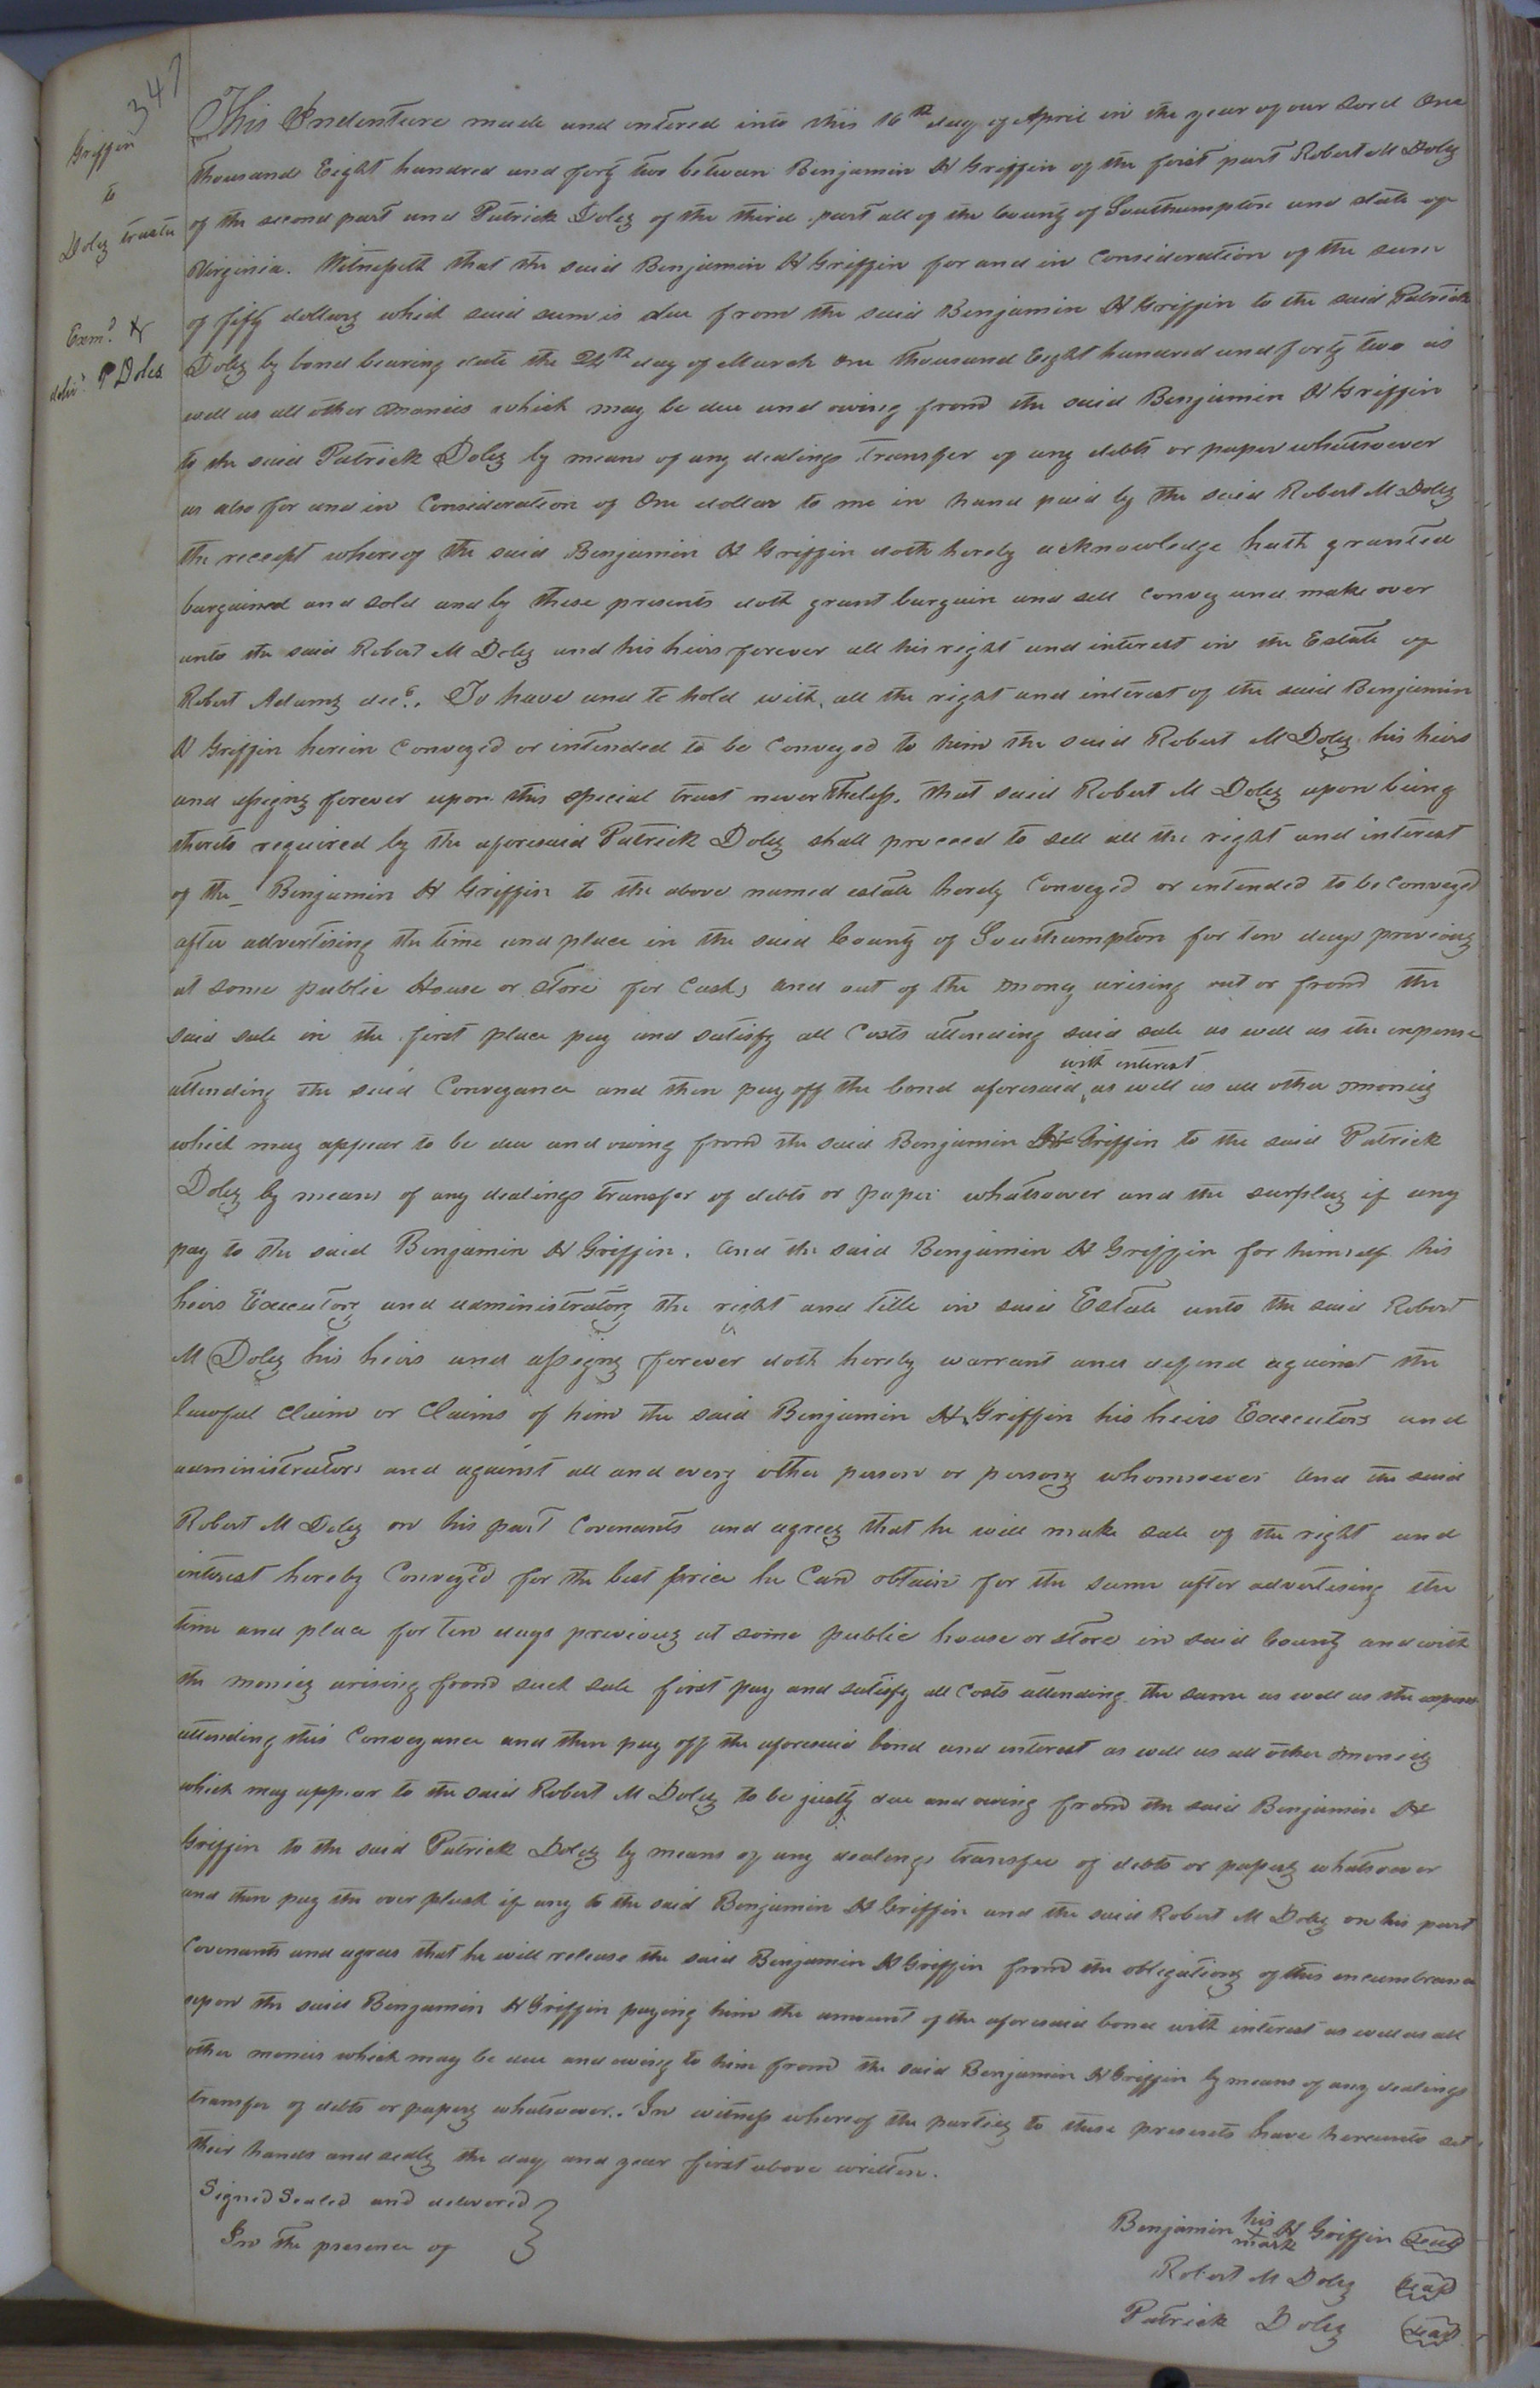 347
Griffin
to
Doles trustee
Exmd. &
delivd. P Doles
This Indenture made and entered into this 16th day of April in the year of our Lord One
thousand Eight hundred and forty two between Benjamin H Griffin of the first part Robert M Doles
of the second part and Patrick Doles of the third part all of the County of Southampton and state of
Virginia. Witnesseth that the said Benjamin H Griffin for and in Consideration of the sum
of fifty dollars which said sum is due from the said Benjamin H Griffin to the said Patrick
Doles by bond bearing date the day of March One thousand Eight hundred and forty two as
well as all other monies which may be due and owing from the said Benjamin H Griffin
to the said Patrick Doles by means of any dealings transfer of any debts or paper whatsoever
as also for and in Consideration of One dollar to me in hand paid by the said Robert M Doles
the receept whereof the said Benjamin H Griffin doth hereby acknowledge hath granted
bargained and sold and by these presents doth grant bargain and sell convey and make over
unto the said Robert M Doles and his heirs forever all his right and interest in the Estate of
Robert Adams decd. To have and to hold with all the right and interest of the said Benjamin
H Griffin herein Conveyed or intended to be Conveyed to him the said Robert M Doles his heirs
and assigns forever upon this special trust nevertheless. that said Robert M Doles upon being
thereto required by the aforesaid Patrick Doles shall proceed to sell all the right and interest
of the Benjamin H Griffin to the above named estate hereby Conveyed or intended to be Conveyed
after advertising the time and place in the said County of Southampton for ten days previous
at some public House or Store for Cash, and out of the money arising out or from the
said sale in the first place pay and satisfy all Costs attending said sale as well as the expense
attending the said Conveyance and then pay off the bond aforesaid with interest as well as all other monies
which may appear to be due and owing from the said Benjamin H Griffin to the said Patrick
Doles by means of any dealings transfer of debts or paper whatsoever and the surplus if any
pay to the said Benjamin H Griffin. And the said Benjamin H Griffin for himself his
heirs Executors and administrators the right and title in said Estate unto the said Robert
M Doles his heirs and assigns forever doth hereby warrant and defend against the
lawful claim or Claims of him the said Benjamin H Griffin his heirs Executors and
administrators and against all and every other person or persons whomsoever And the said
Robert M Doles on his part Covenants and agrees that he will make sale of the right and
interest hereby Conveyed for the best price he Can obtain for the same after advertising the
time and place for ten days previous at some public house or store in said County and with
the monies arising from such sale first pay and satisfy all Costs attending the same as well as the expense
attending this Conveyance and then pay off the aforesaid bond and interest as well as all other monies
which may appear to the said Robert M Doles to be justly due and owing from the said Benjamin H
Griffin to the said Patrick Doles by means of any dealings transfer of debts or papers whatsoever
and then pay the over plush if any to the said Benjamin H Griffin and the said Robert M Doles on his part
Covenants and agrees that he will release the said Benjamin H Griffin from the obligations of this encumbrance
upon the said Benjamin H Griffin paying him the amount of the aforesaid bond with interest as well as all
other monies which may be due and owing to him from the said Benjamin H Griffin by means of any dealings
transfer of debts or papers whatsoever. In witness whereof the parties to these presents have hereunto set
their hands and seals the day and year first above written.
Signed Sealed and delivered
In the presence of
Benjamin his x mark H Griffin seal
Robert M Doles seal
Patrick Doles seal